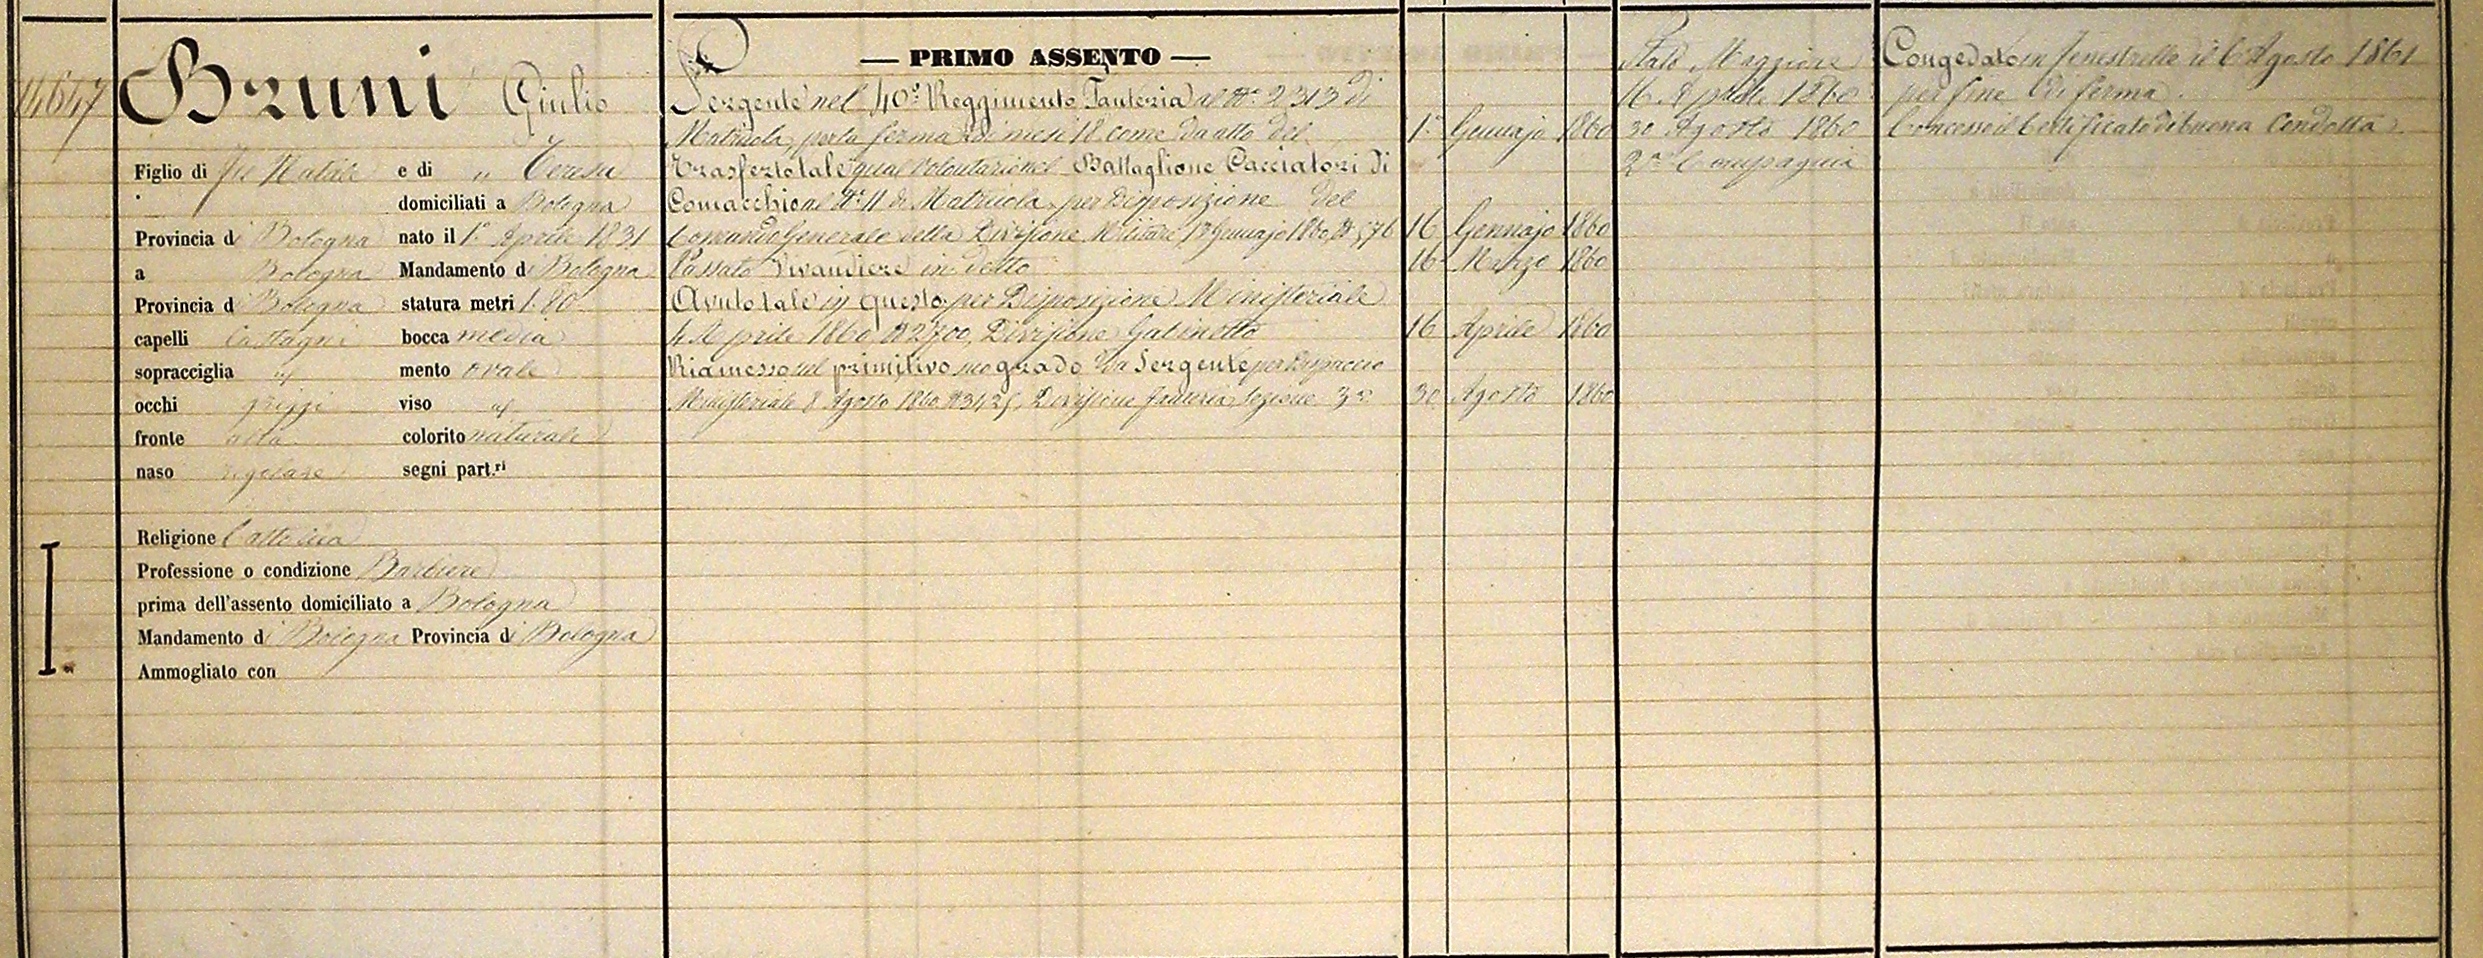 14647
Bruni Giulio
Figlio di fu Natale e di " Teresa
domiciliati a Bologna
Provincia di Bologna nato il 1.º Aprile 1831
a Bologna Mandamento di Bologna
Provincia di Bologna statura metri 1.80
capelli Castagni bocca media
sopracciglia id mento ovale
occhi griggi viso id
fronte alta colorito naturale
naso regolare segni part.ri
Religione Cattolica
Professione o condizione Barbiere
prima dell'assento domiciliato a Bologna
Mandamento di Bologna Provincia di Bologna
Ammogliato con
I
— PRIMO ASSENTO —
Sergente nel 40.º Reggimento Fanteria al Nº 2313 di
Matricola, per la ferma di mesi 18 come da atto del 1.º Gennajo 1860
Trasferto tale qual Volontario nel Battaglione Cacciatori di
Comacchio al Nº 11 di Matricola, per Disposizione del
Comando Generale della Divisione Militare, 13 Gennajo 1860, Nº 576 16 Gennajo 1860
Passato Vivandiere in detto 16 Marzo 1860
Avuto tale in questo per Disposizione Ministeriale
4 Aprile 1860 Nº 2700, Divisione Gabinetto 16 Aprile 1860
Riamesso nel primitivo suo grado da Sergente per Dispaccio
Ministeriale 8 Agosto 1860 Nº 3425, Divisione Fanteria Sezione 3ª 30 Agosto 1860
Stato Maggiore
16 Aprile 1860
30 Agosto 1860
2ª Compagnia
Congedato in Fenestrelle il 6 Agosto 1861
per fine di ferma.
Concesso il Certificato di buona Condotta.